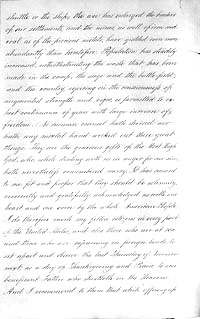 shuttle or the ship; the axe has enlarged the borders
of our settlements, and the mines, as well of iron and
coal as of the precious metals, have yielded even more
abundantly than heretofore. Population has steadily
increased, notwithstanding the waste that has been
made in the camp, the siege and the battle-field;
and the country, rejoicing in the consciousness of
augmented strength and vigor, is permitted to ex-
pect continuance of years with large increase of
freedom. No human counsel hath devised nor
hath any mortal hand worked out these great
things. They are the gracious gifts of the Most High
God, who, while dealing with us in anger for our sins,
hath nevertheless remembered mercy. It has seemed
to me fit and proper that they should be solemnly,
reverently and gratefully acknowledged as with one
heart and one voice by the whole American People.
I do therefore invite my fellow citizens in every part
of the United States, and also those who are at sea
and those who are sojourning in foreign lands, to
set apart and observe the last Thursday of November
next, as a day of Thanksgiving and Praise to our
beneficent Father who dwelleth in the Heavens.
And I recommend to them that while offering up